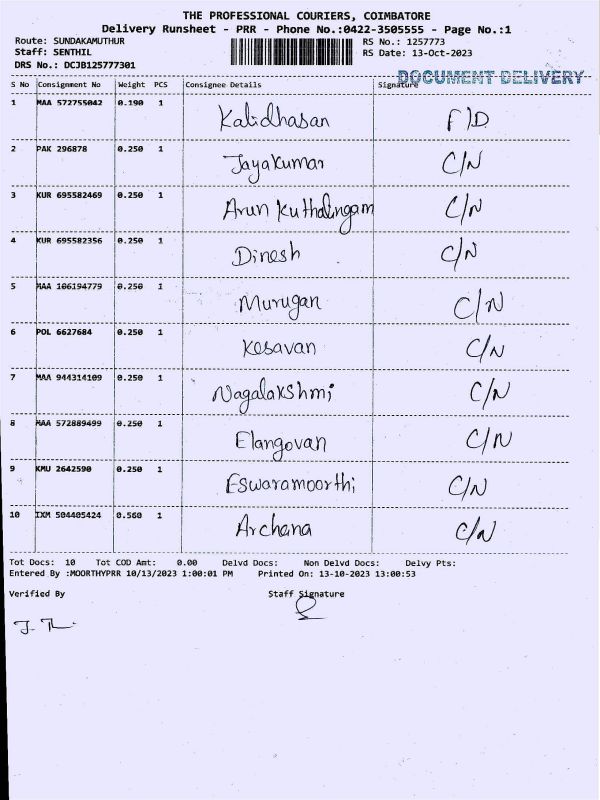 THE PROFESSIONAL COURIERS, COIMBATORE
Delivery Runsheet - PRR - Phone No.:0422-3505555 - Page No.:1
Route: SUNDAKAMUTHUR RS No.: 1257773
Staff: SENTHIL RS Date: 13-Oct-2023
DRS No.: DCJB125777301
DOCUMENT DELIVERY
S No Consignment No Weight PCS Consignee Details Signature
1 MAA 572755042 0.190 1 Kalidhasan F/D
2 PAK 296878 0.250 1 Jayakumar C/N
3 KUR 695582469 0.250 1 Arun Kuthalingam C/N
4 KUR 695582356 0.250 1 Dinesh C/N
5 MAA 106194779 0.250 1 Murugan C/N
6 POL 6627684 0.250 1 Kesavan C/N
7 MAA 944314109 0.250 1 Nagalakshmi C/N
8 MAA 572889499 0.250 1 Elangovan C/N
9 KMU 2642590 0.250 1 Eswaramoorthi C/N
10 IXM 504405424 0.560 1 Archana C/N
Tot Docs: 10 Tot COD Amt: 0.00 Delvd Docs: Non Delvd Docs: Delvy Pts:
Entered By :MOORTHYPRR 10/13/2023 1:00:01 PM Printed On: 13-10-2023 13:00:53
Verified By Staff Signature